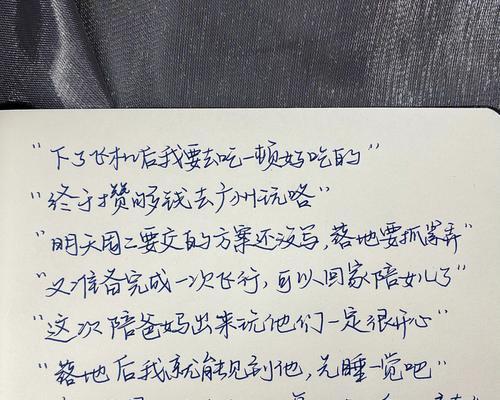 "下了飞机后我要去吃一顿好吃的"
"终于攒够钱去广州玩咯"
"明天周二要交的方案还没写,落地要抓紧弄"
"又准备完成一次飞行,可以回家陪女儿了"
"这次陪爸妈出来玩他们一定很开心"
"落地后我就能见到他,先睡一觉吧"